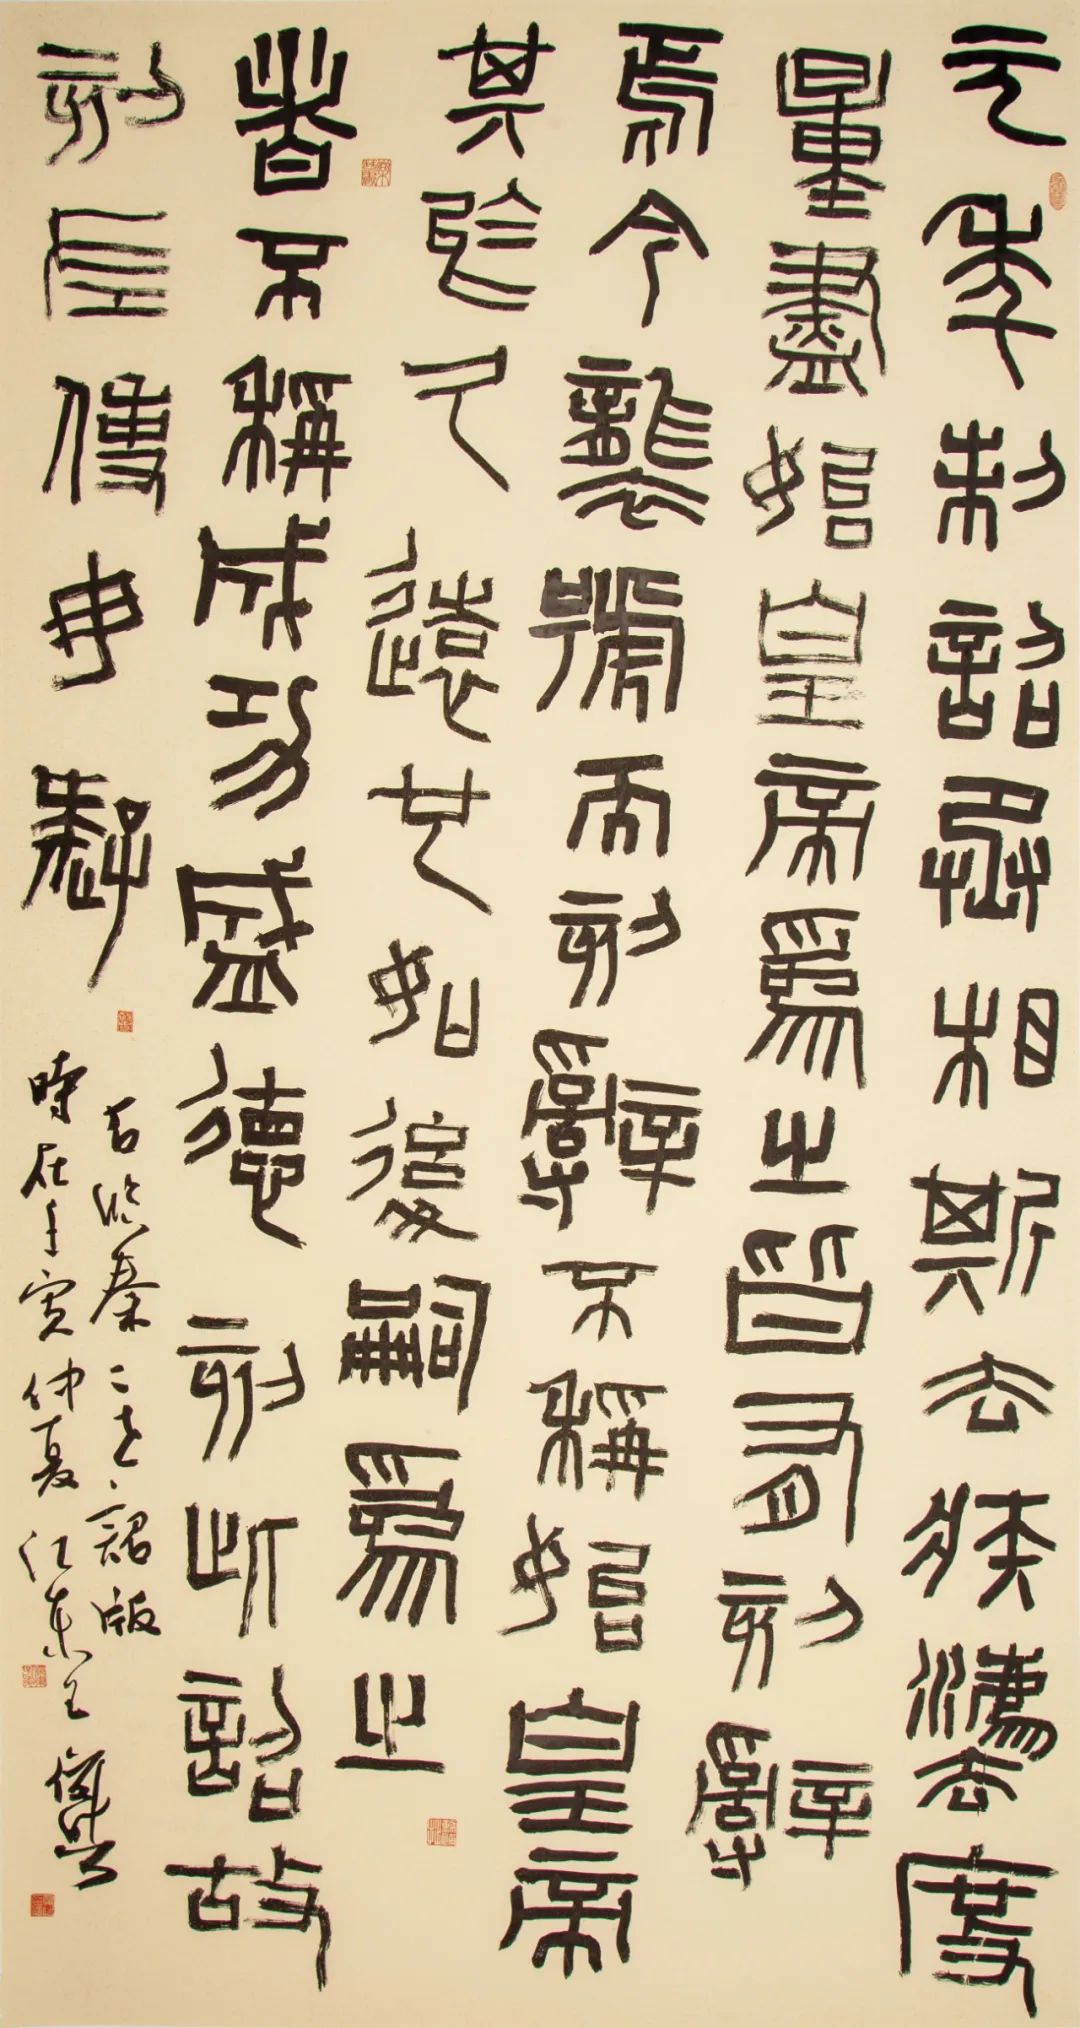 元年制詔丞相斯去疾灋度
量盡始皇帝爲之皆有刻辭
焉今襲號而刻辭不稱始皇帝
其於久遠也如後嗣爲之
者不稱成功盛德刻此詔故
刻左使毋疑
右臨秦二世詔版
時在壬寅仲夏江東王